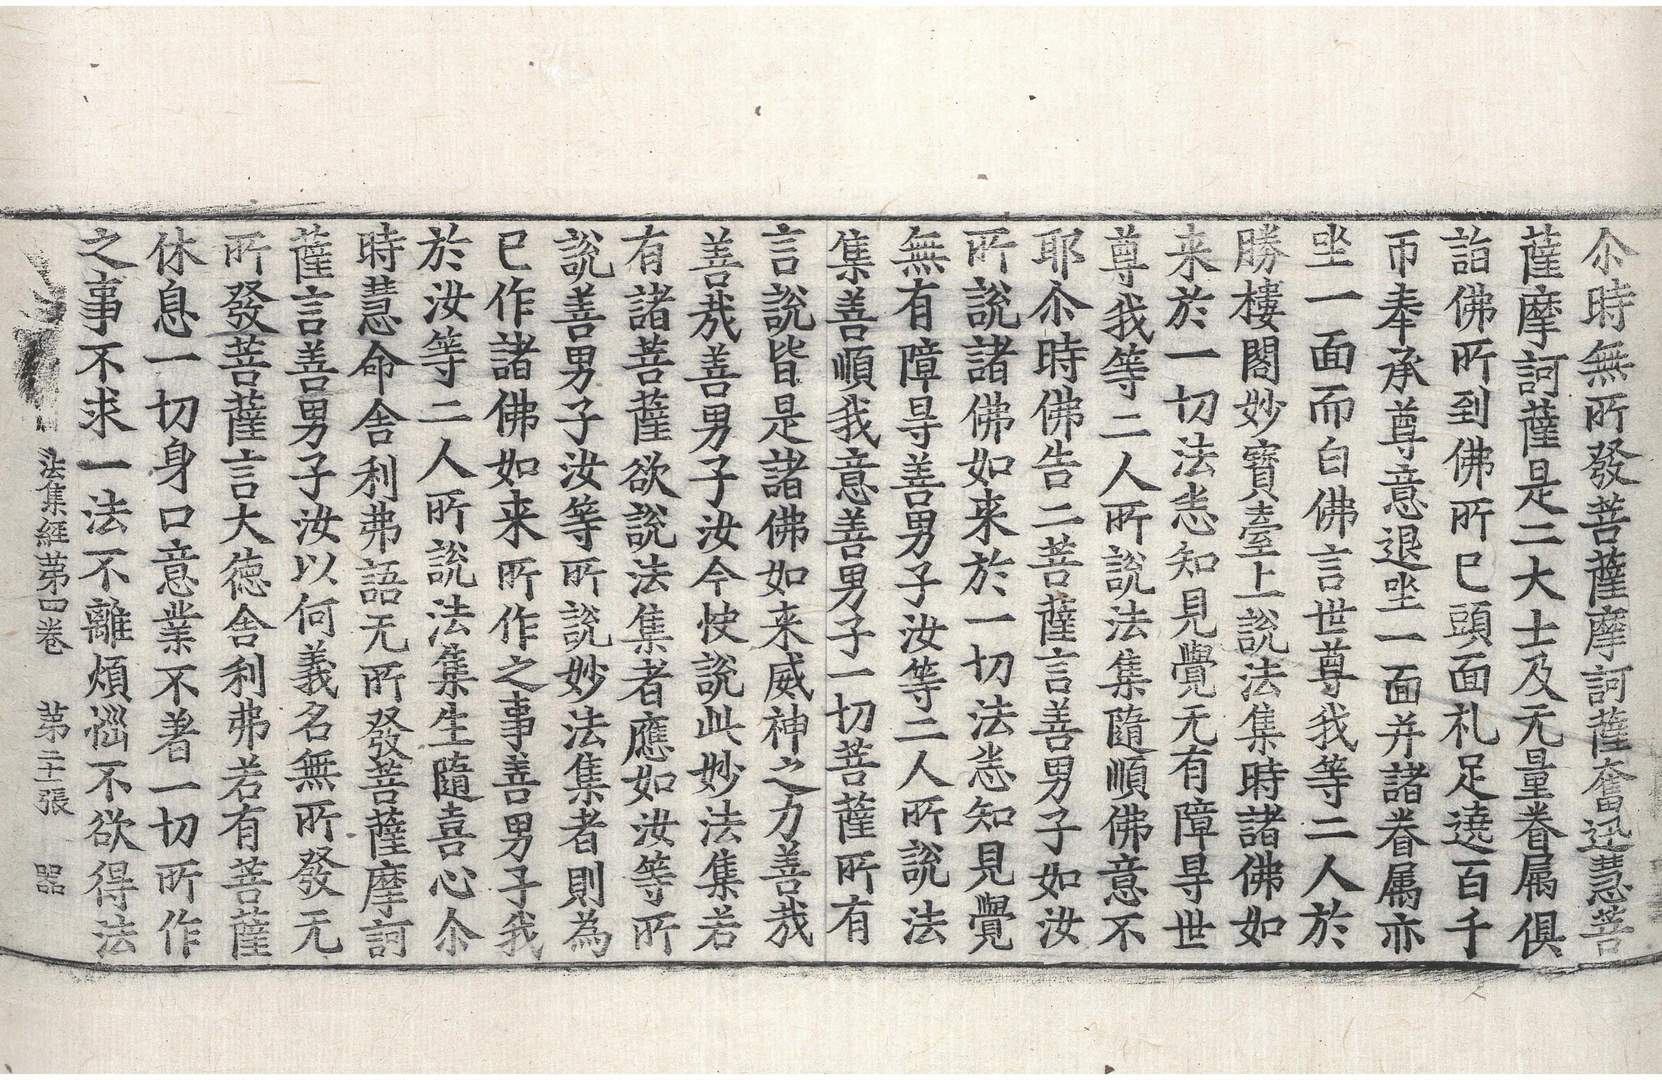 尒時無所發菩薩摩訶薩奮迅慧菩
薩摩訶薩是二大士及无量眷属俱
詣佛所到佛所已頭面礼足遶百千
帀奉承尊意退坐一面并諸眷属亦
坐一面而白佛言世尊我等二人於
勝樓閣妙寶臺上說法集時諸佛如
来於一切法悉知見覺无有障㝵世
尊我等二人所說法集隨順佛意不
耶尒時佛告二菩薩言善男子如汝
所說諸佛如来於一切法悉知見覺
無有障㝵善男子汝等二人所說法
集善順我意善男子一切菩薩所有
言說皆是諸佛如来威神之力善哉
善哉善男子汝今快說此妙法集若
有諸菩薩欲說法集者應如汝等所
說善男子汝等所說妙法集者則為
已作諸佛如来所作之事善男子我
於汝等二人所說法集生隨喜心尒
時慧命舍利弗語无所發菩薩摩訶
薩言善男子汝以何義名無所發无
所發菩薩言大德舍利弗若有菩薩
休息一切身口意業不著一切所作
之事不求一法不離煩惱不欲得法
法集經第四卷 第二十一張 器